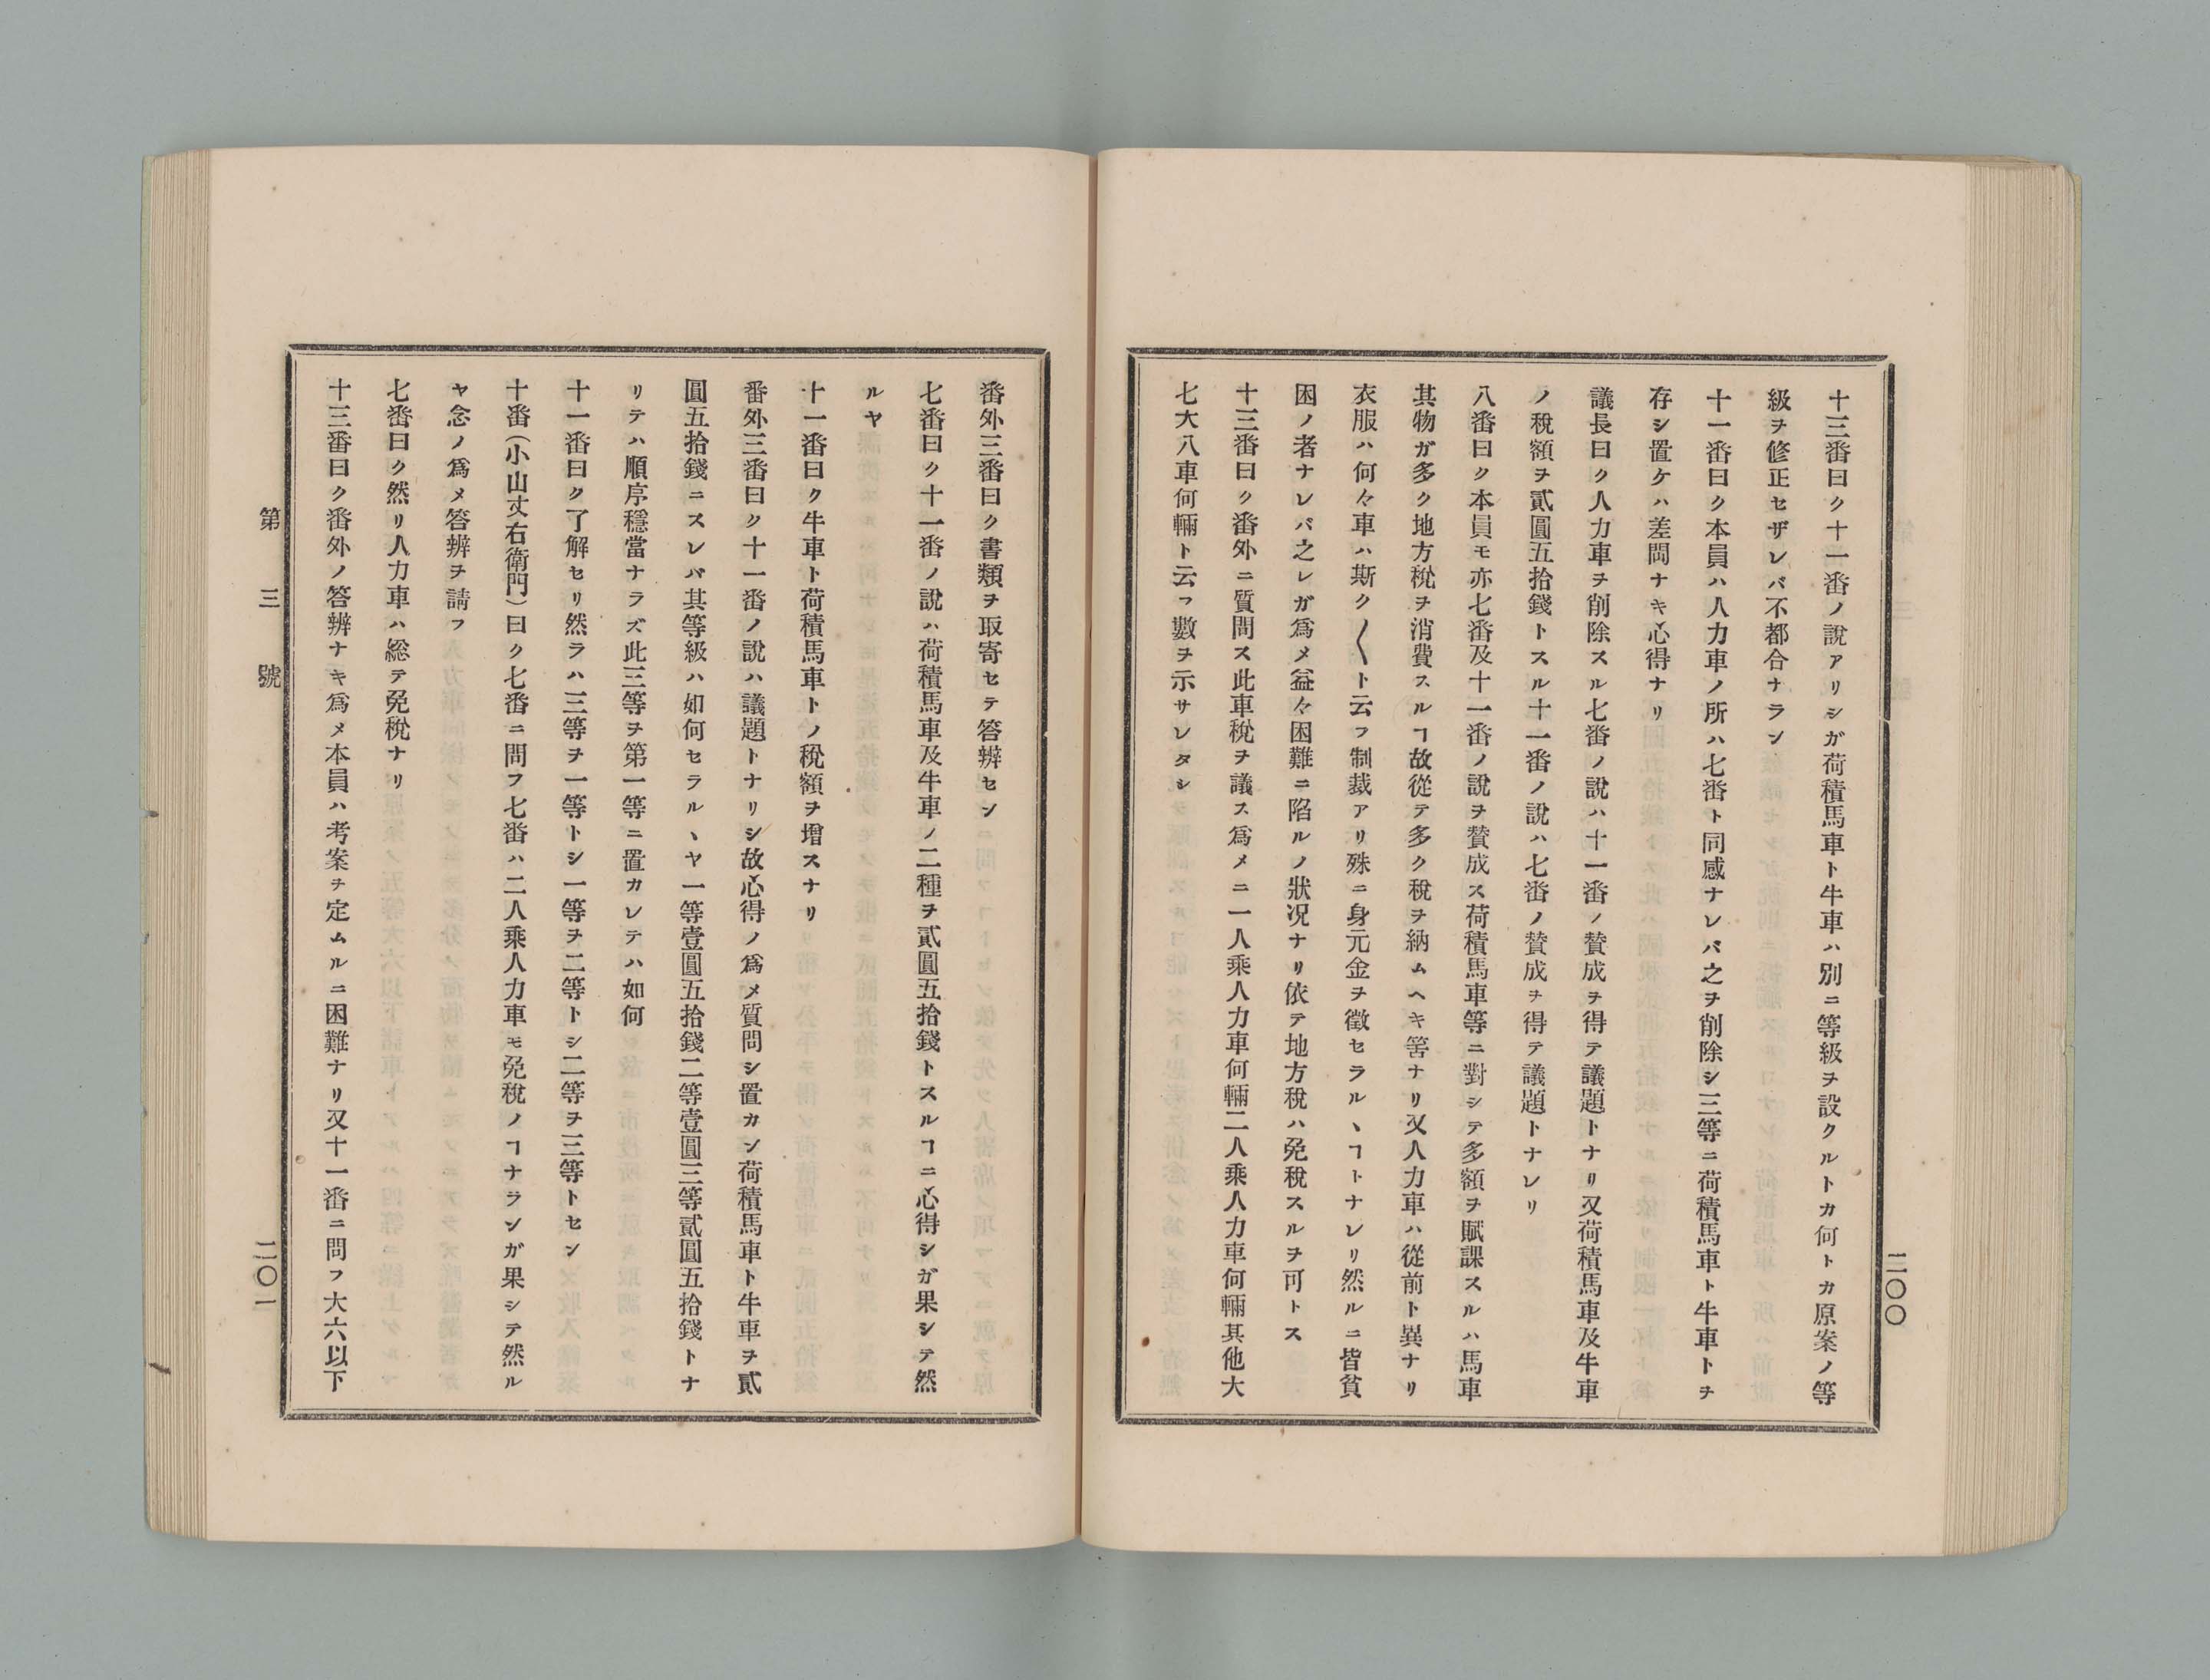 二〇〇
十三番曰ク十一番ノ說アリシガ荷積馬車ト牛車ハ別ニ等級ヲ設クルトカ何トカ原案ノ等
級ヲ修正セザレバ不都合ナラン
十一番曰ク本員ハ人力車ノ所ハ七番ト同感ナレバ之ヲ削除シ三等ニ荷積馬車ト牛車トヲ
存シ置ケハ差閊ナキ心得ナリ
議長曰ク人力車ヲ削除スル七番ノ說ハ十一番ノ賛成ヲ得テ議題トナリ又荷積馬車及牛車
ノ稅額ヲ貳圓五拾錢トスル十一番ノ說ハ七番ノ賛成ヲ得テ議題トナレリ
八番曰ク本員モ亦七番及十一番ノ說ヲ賛成ス荷積馬車等ニ對シテ多額ヲ賦課スルハ馬車
其物ガ多ク地方稅ヲ消費スルヿ故從テ多ク稅ヲ納ムヘキ筈ナリ又人力車ハ從前ト異ナリ
衣服ハ何々車ハ斯ク〱ト云フ制裁アリ殊ニ身元金ヲ徵セラルヽヿトナレリ然ルニ皆貧
困ノ者ナレバ之レガ爲メ益々困難ニ陷ルノ狀况ナリ依テ地方稅ハ免稅スルヲ可トス
十三番曰ク番外ニ質問ス此車稅ヲ議ス爲メニ一人乘人力車何輛二人乘人力車何輛其他大
七大八車何輛ト云フ數ヲ示サレタシ
番外三番曰ク書類ヲ取寄セテ答辨セン
七番曰ク十一番ノ說ハ荷積馬車及牛車ノ二種ヲ貳圓五拾錢トスルヿニ心得シガ果シテ然
ルヤ
十一番曰ク牛車ト荷積馬車トノ稅額ヲ增スナリ
番外三番曰ク十一番ノ說ハ議題トナリシ故心得ノ爲メ質問シ置カン荷積馬車ト牛車ヲ貳
圓五拾錢ニスレバ其等級ハ如何セラルヽヤ一等壹圓五拾錢二等壹圓三等貳圓五拾錢トナ
リテハ順序穩當ナラズ此三等ヲ第一等ニ置カレテハ如何
十一番曰ク了解セリ然ラハ三等ヲ一等トシ一等ヲ二等トシ二等ヲ三等トセン
十番（小山丈右衛門）曰ク七番ニ問フ七番ハ二人乘人力車モ免稅ノヿナランガ果シテ然ル
ヤ念ノ爲メ答辨ヲ請フ
七番曰ク然リ人力車ハ総テ免稅ナリ
十三番曰ク番外ノ答辨ナキ爲メ本員ハ考案ヲ定ムルニ困難ナリ又十一番ニ問フ大六以下
第三號
二〇一